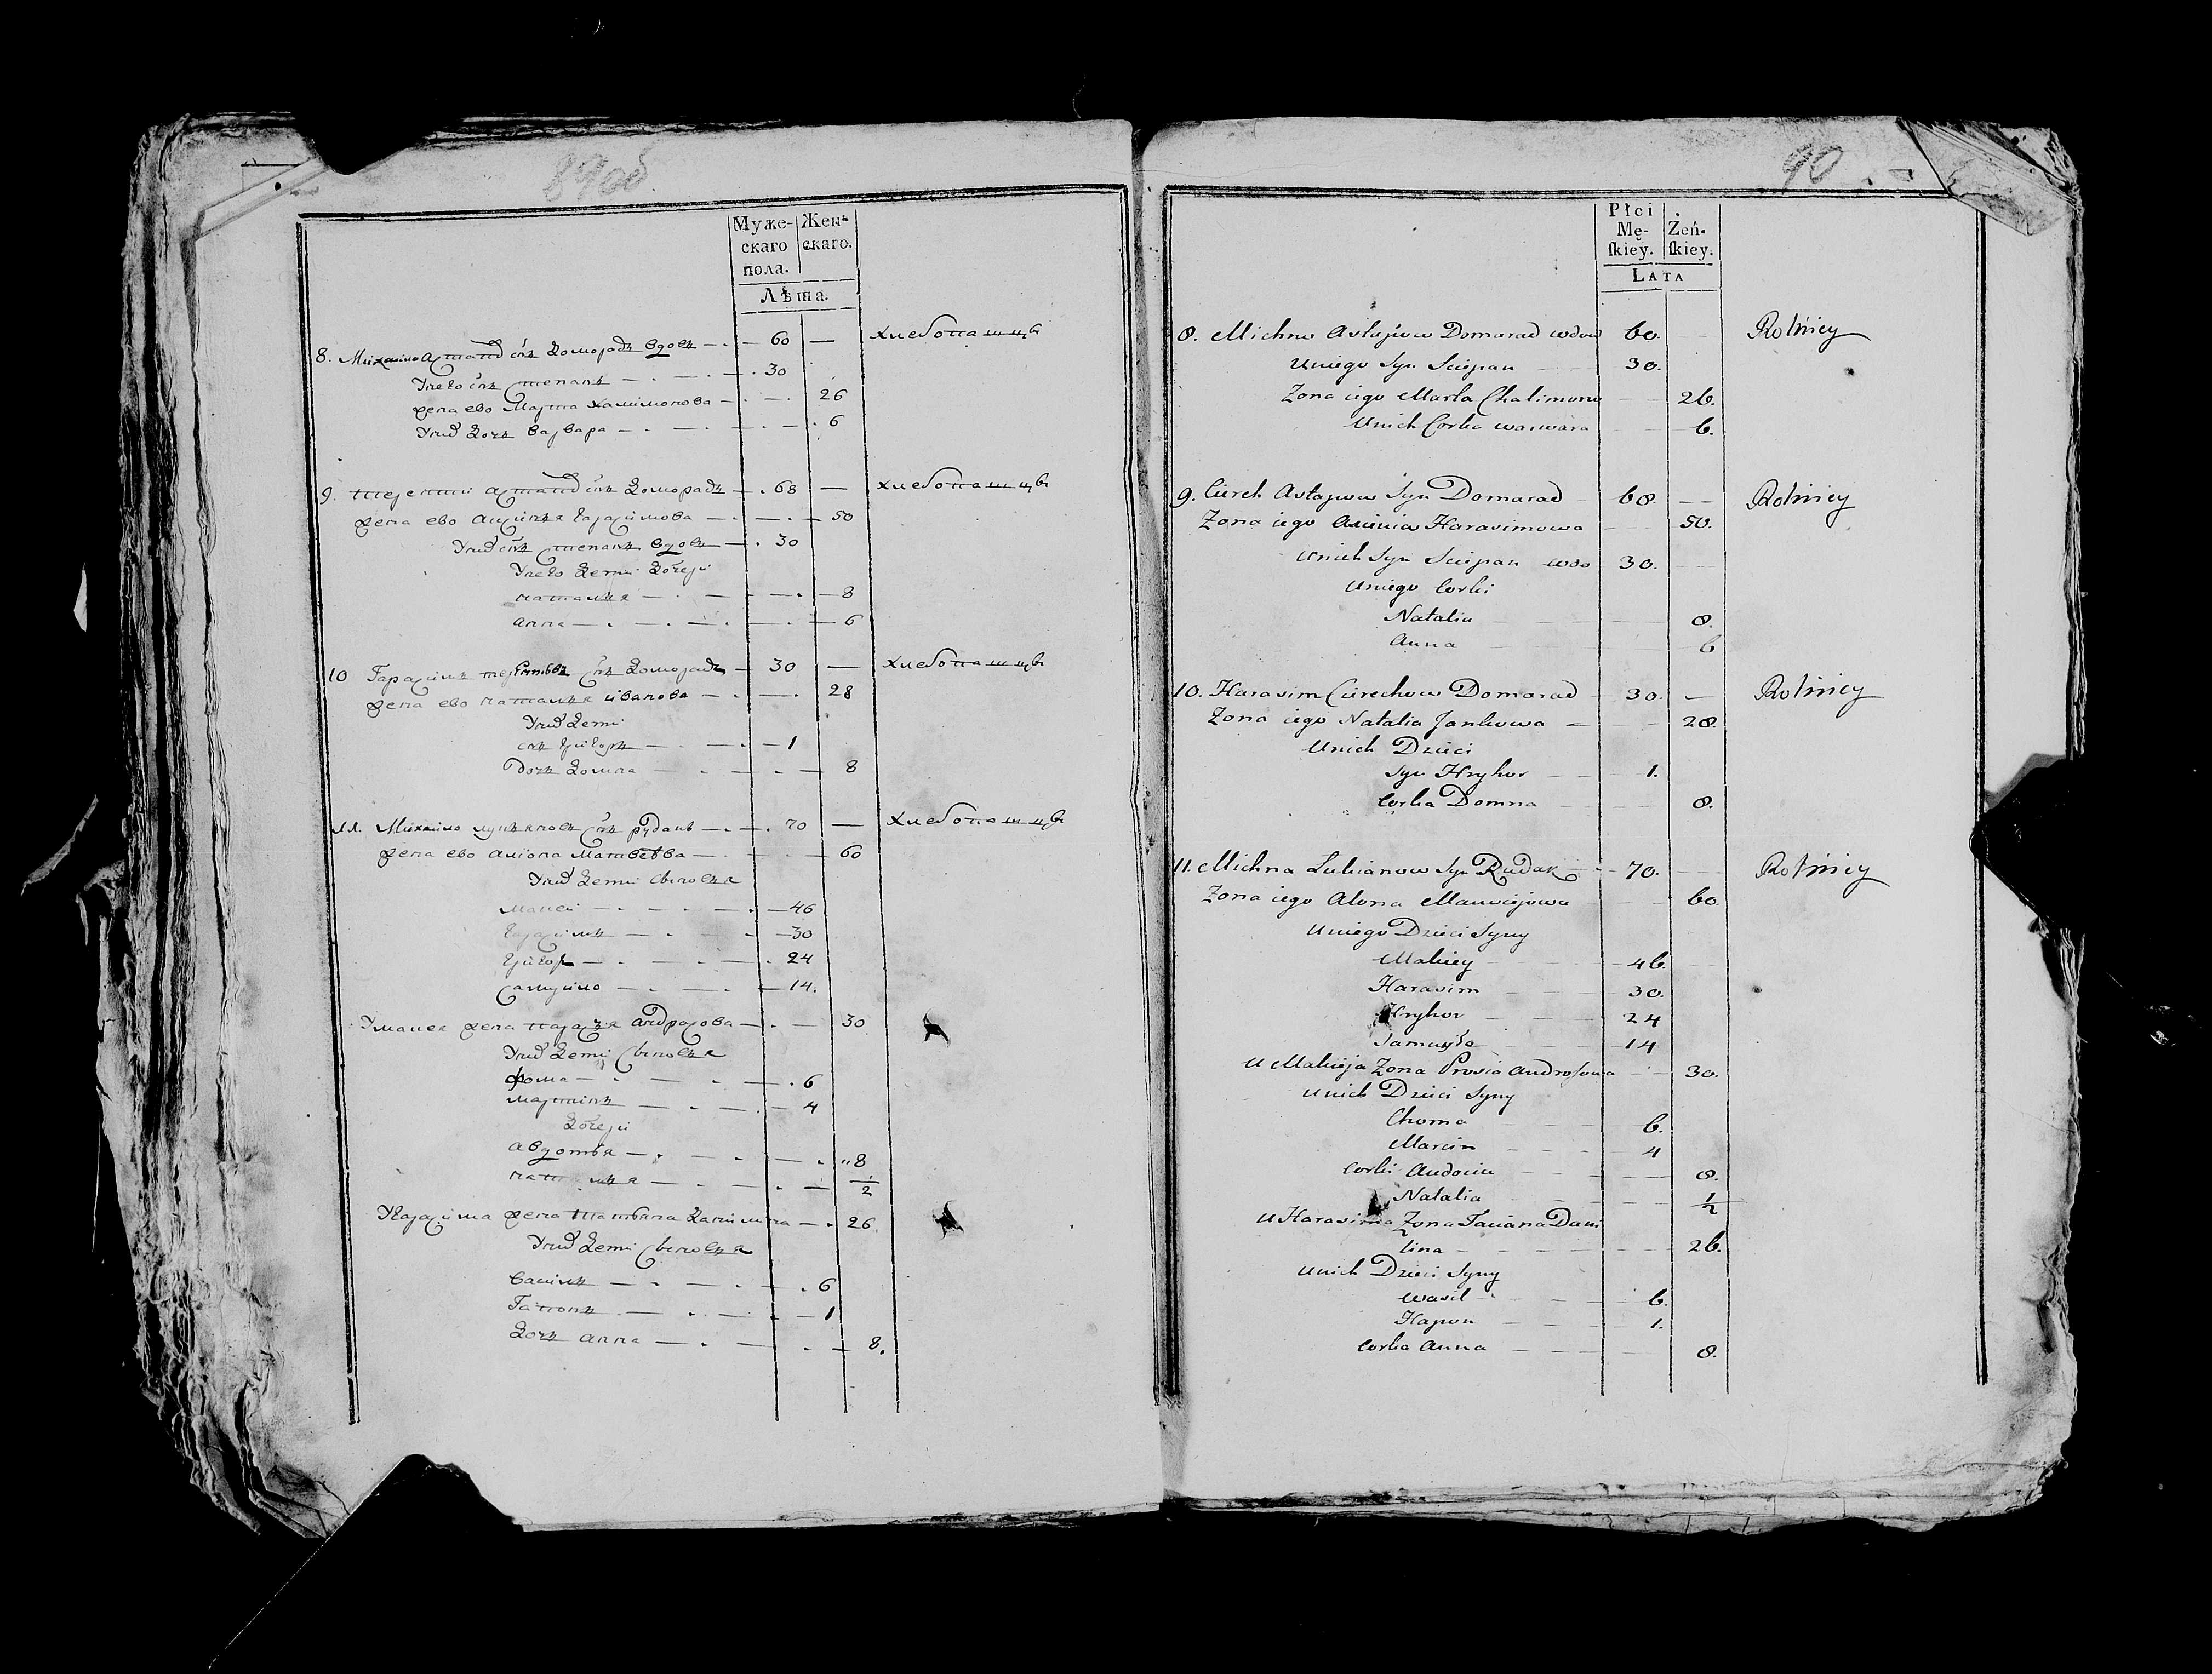 89об
Муже- Жен-
скаго скаго.
пола.
Лѣта.
8. Михаило Астапов снъ Домарадъ вдовъ 60 — хлебопашцы
У него снъ Степанъ 30
жена ево Марта Халимонова 26
У них дочь Варвара 6
9. Терешко Астапов снъ Домарадъ 68 — хлебопашцы
жена ево Гарасимова 50
У них снъ Степанъ вдовъ 30
У него дети дочери
Наталия 8
Анна 6
10 Гарасимъ снъ Домарадъ 30 — хлебопашцы
жена ево Наталия Иванова 28
У них дети
снъ Григоръ 1
Дочь Домна 8
11. Михаило Лукъяновъ снъ Рудакъ 70 — хлебопашцы
жена ево Алиона Матвеева 60
У них дети сыновья
Мацей 46
Гарасимъ 30
Григор 24
Самуило 14.
У Мацея жена Андросова 30
У них дети сыновья
Фома 6
Мартинъ 4
дочери
Авдотья 8
Наталия 1/2
У Гарасима жена Татьяна 26
У них дети сыновья
Василь 6
Гапонъ 1
Дочь Анна 8.
90
Płci
Mę- Żeń-
ſkiey. ſkiey.
LATA
8. Michno Astapow Domarad wdow 60. Rolnicy
U niego Syn Sciepan 30.
Zona iego Marta Chalimono 26.
U nich Corka Warwara 6.
9. Cierech Astapow Syn Domarad 68. Rolnicy
Zona iego Axienia Harasimowa 50.
U nich Syn Sciepan wdo 30.
U niego Corki
Natalia 8.
Anna 6
10. Harasim Cierechow Domarad 30. — Rolnicy
Zona iego Natalia Jankowa 28.
U nich Dzieci
Syn Hryhor 1.
Corka Domna 8.
11. Michna Lukianow Syn Rudak 70. Rolnicy
Zona iego Alona Maciejowa 60
U niego Dzieci Syny
Maciey 46.
Harasim 30.
Hryhor 24
Samuyło 14
U Macieja Zona Prosia Androsowa 30.
U nich Dzieci Syny
Choma 6.
Marcin 4
Corki Audocia 8.
Natalia 1/2
U Harasima Zona Taciana Dani
lina 26.
U nich Dzieci Syny
Wasil 6.
Hapon 1.
Corka Anna 8.